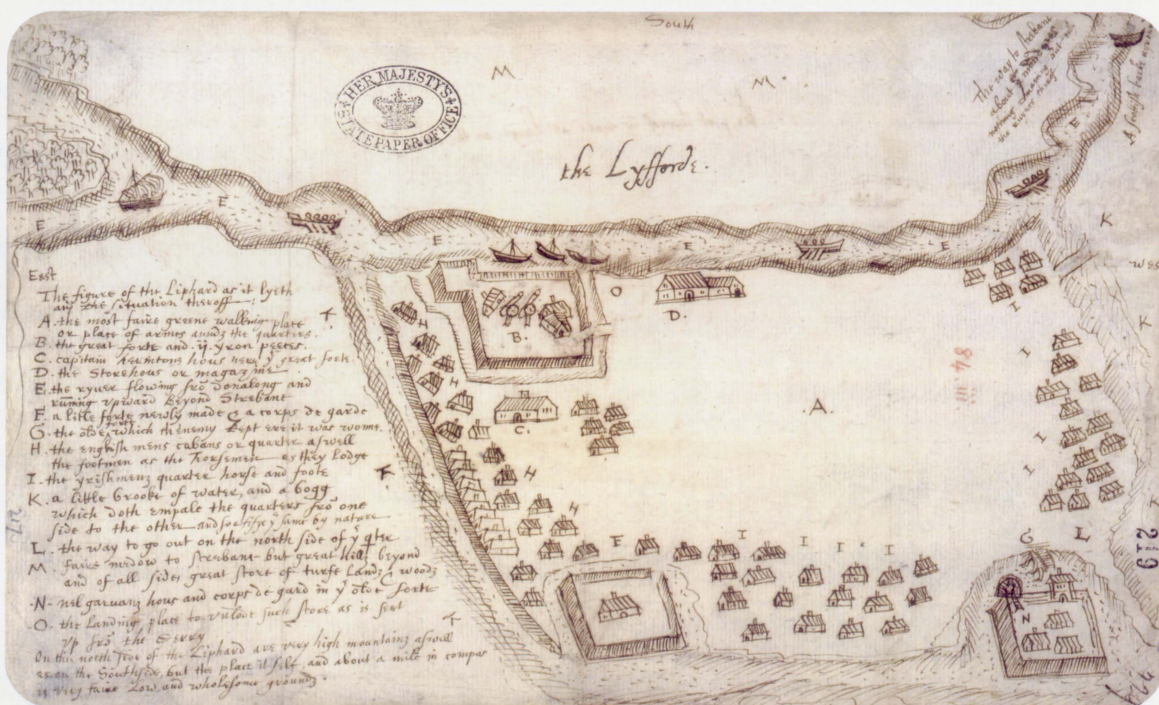 South
M
M
HER MAJESTY'S
STATE PAPER OFFICE
the Lyfforde.
The way to
about
A
E
E
E
E
E
E
K
K
K
East
The figure of the Liphard as it lyeth
and the situation theroff
A. the most faire greene walking place
or place of armes the quarters.
B. the great forte and ij. yron peeces.
C. capitain hous nere yͤ great forte.
D. the Storehous or magazine
E. the ryver flowing frō Donalong and
running upward beyond Strebane
F. a litle forte newly made & a corps de garde
G. the olde forte which thenemy kept ere it was wonne.
H. the english mens cabans or quarter aswell
the footmen as the horsemen as they lodge
I. the yrishmenz quarter horse and foote
K. a little brooke of water, and a bogg
which doth empale the quarters frō one
side to the other and by nature
L. the way to go out on the north side of yͤ
M. faire medow to Strebane but great hills beyond
and of all sides great store of turfe landz woodz
N. nil garvanz hous and corps de gard in yͤ olde forte
O. the landing place to unlode such store as is sent
up frō the Derry
On the north side of the Liphard are very high mountainz aswell
as on the Southside, but the place it self, and about a mile in compas
is very faire low and wholesome groundz
B.
O
D.
C.
A
H
H
H
H
F
I
I
I
I
I
I
I
G
L
N
K
K
K
84
219